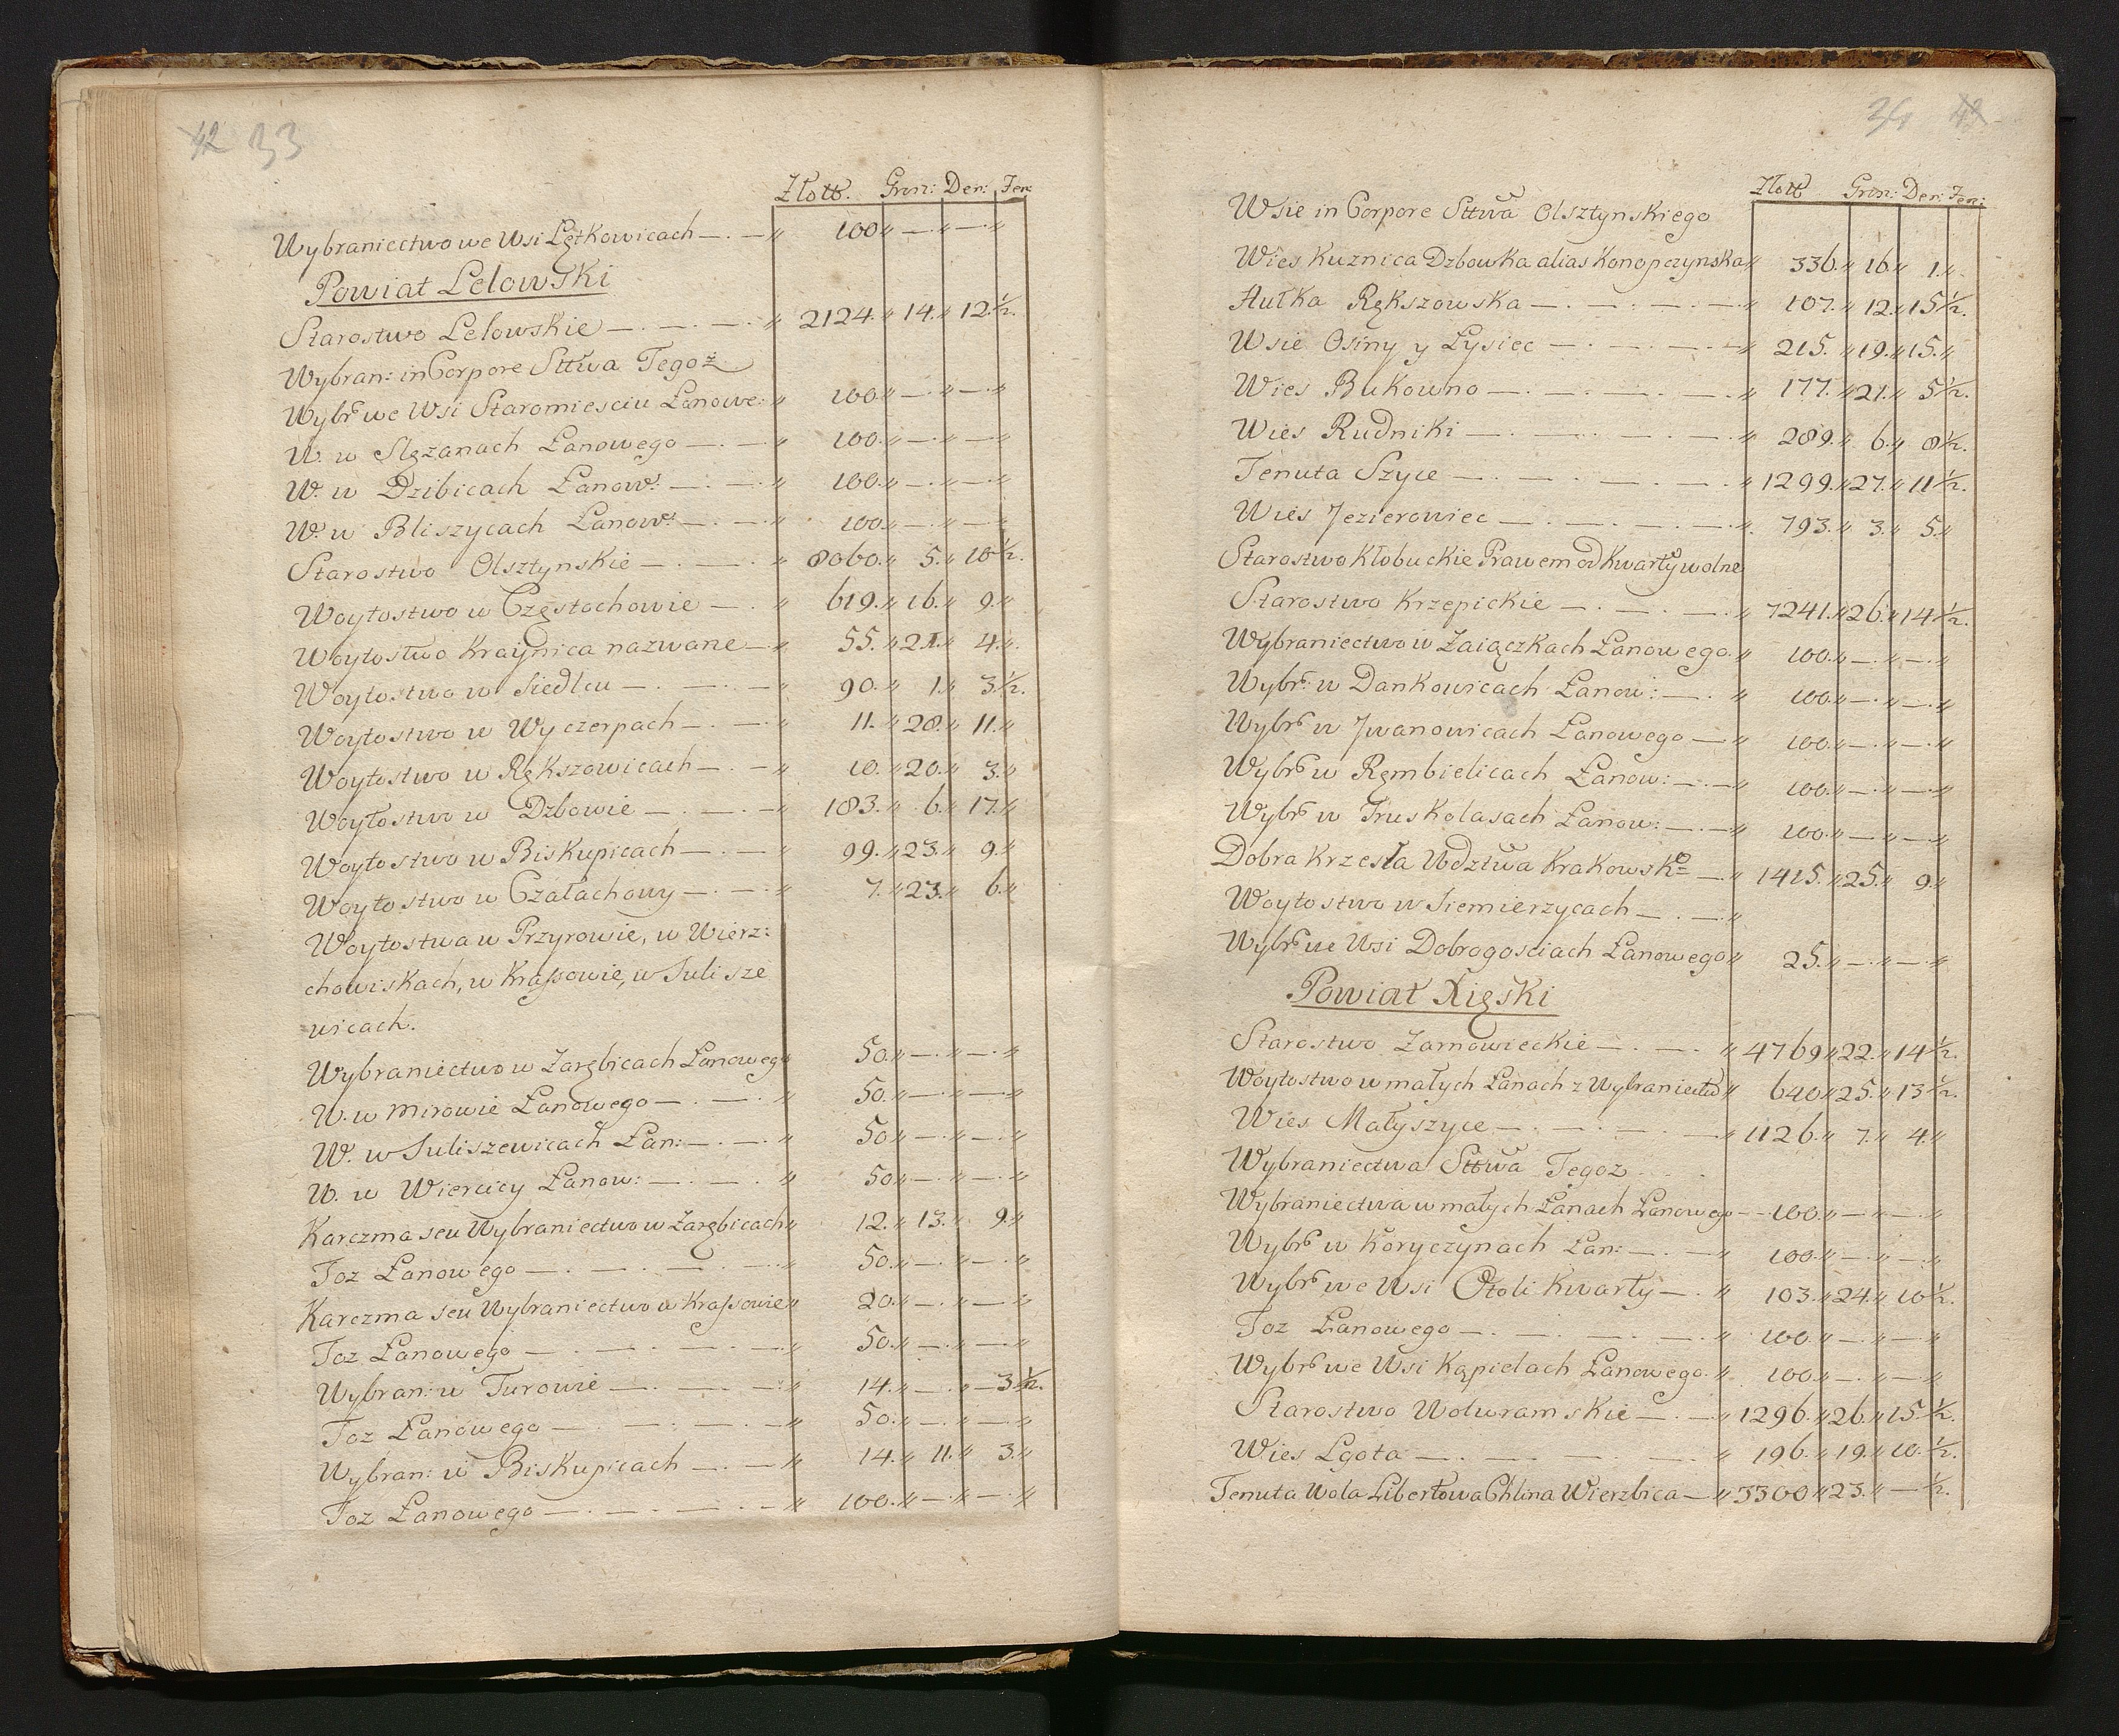 42 33
Złott. Gron: Den: Fen:
Wybraniectwo we Wsi Lętkowicach — . — " 100 " — . " — . "
Powiat Lelowski
Starostwo Lelowskie — . — . — . " 2124. " 14. " 12. ½.
Wybran: in Corpore Sttwa Tegoż
Wybr: we Wsi Staromiesciu Łanowe: " 100. " — . " — . "
W. w Slęzanach Łanowego — . — . " 100. " — . " — . "
W. w Dzibicach Łanow: — . — . " 100. " — . " — . "
W. w Bliszycach Łanow: — . — . " 100. " — . " — . "
Starostwo Olsztynskie — . — . " 8060. " 5. " 10 ½.
Woytostwo w Częstochowie — . " 619. " 16. " 9. "
Woytostwo Kraynica nazwane — " 55. " 21. " 4. "
Woytostwo w Siedlcu — . — . — " 90. " 1. " 3. ½.
Woytostwo w Wyczerpach — . — . " 11. " 28. " 11. "
Woytostwo w Rększowicach — . — " 10. " 20. " 3. "
Woytostwo w Dzbowie — . — . — " 183. " 6. " 17. "
Woytostwo w Biskupicach — . — " 99. " 23. " 9. "
Woytostwo w Czałachowy — . — . " 7. " 23. " 6. "
Woytostwa w Przyrowie, w Wierz:
chowiskach, w Krassowie, w Sulisze
wicach.
Wybraniectwo w Zarębicach Łanowego 50. " — . " — . "
W. w Mirowie Łanowego — . — . " 50. " — . " — . "
W. w Suliszewicach Łan: — . — . " 50 " — . " — . "
W. w Wiercicy Łanow: — . — . " 50 " — . " — . "
Karczma seu Wybraniectwo w Zarębicach " 12. " 13. " 9. "
Toz Łanowego — . — . — . — . " 50. " — . " — . "
Karczma seu Wybraniectwo w Krassowie " 20. " — . " — . "
Toz Łanowego — . — . — . — . " 50. " — . " — . "
Wybran: w Turowie — . — . — . " 14. " — . " — 3. ½.
Toz Łanowego — . — . — . — " 50. " — . " — . "
Wybran: w Biskupicach — . — " 14. " 11. " 3. "
Toz Łanowego — . — . — . — " 100. " — . " — . "
34 42
Złott Gron: Den: Fen:
Wsie in Corpore Sttwa Olsztynskiego
Wies Kuznica Dzbowska alias Konopczynska " 336. " 16. " 1. "
Hutka Rększowska — . — . — . — " 107. " 12. " 15 ½.
Wsie Osiny y Łysiec — . — . — . — " 215. " 19. " 15. "
Wies Bukowno — . — . — . — . " 177. " 21. " 5 ½.
Wies Rudniki — . — . — . — . " 289. " 6. " 8 ½.
Tenuta Szyce — . — . — . — . " 1299. " 27. " 11 ½.
Wies Jezierowiec — . — . — . — " 793. " 3. " 5. "
Starostwo Kłobuckie Prawem od Kwarty wolne
Starostwo Krzepickie — . — . — . " 7241. " 26. " 14 ½.
Wybraniectwo w Zaiączkach Łanowego. " 100. " — . " — . "
Wybr: w Dankowicach Łanow: — . " 100. " — . " — . "
Wybr: w Jwanowicach Łanowego — " 100. " — . " — . "
Wybr: w Ręmbielicach Łanow: — . — " 100. " — . " — . "
Wybr: w Truskolasach Łanow: — . — " 100. " — . " — . "
Dobra Krzesła Wdztwa Krakowskº — " 1415. " 25. " 9. "
Woytostwo w Siemierzycach — . — . "
Wybr: we Wsi Dobrogosciach Łanowego " 25. " — . " — . "
Powiat Xięski
Starostwo Zarnowieckie — . — . " 4769 " 22. " 14 ½.
Woytostwo w małych Łanach z Wybraniectw " 640 " 25. " 13 ½.
Wies Małyszyce — . — . — . — " 1126. " 7. " 4. "
Wybraniectwa Sttwa Tegoz
Wybraniectwa w małych Łanach Łanowego — 100. " — . " — . "
Wybr: w Koryczynach Łan: — . — " 100. " — . " — . "
Wybr: we Wsi Otoli Kwarty — . " 103. " 24. " 10 ½.
Toz Łanowego — . — . — . — . " 100. " — . " — . "
Wybr: we Wsi Kąpielach Łanowego. " 100. " — . " — . "
Starostwo Wolwramskie — . — " 1296. " 26. " 15. ½.
Wies Lgota — . — . — . — . " 196. " 19. " 10. ½.
Tenuta Wola Libertowa Chlina Wierzbica — " 3300 " 23. " — ½.